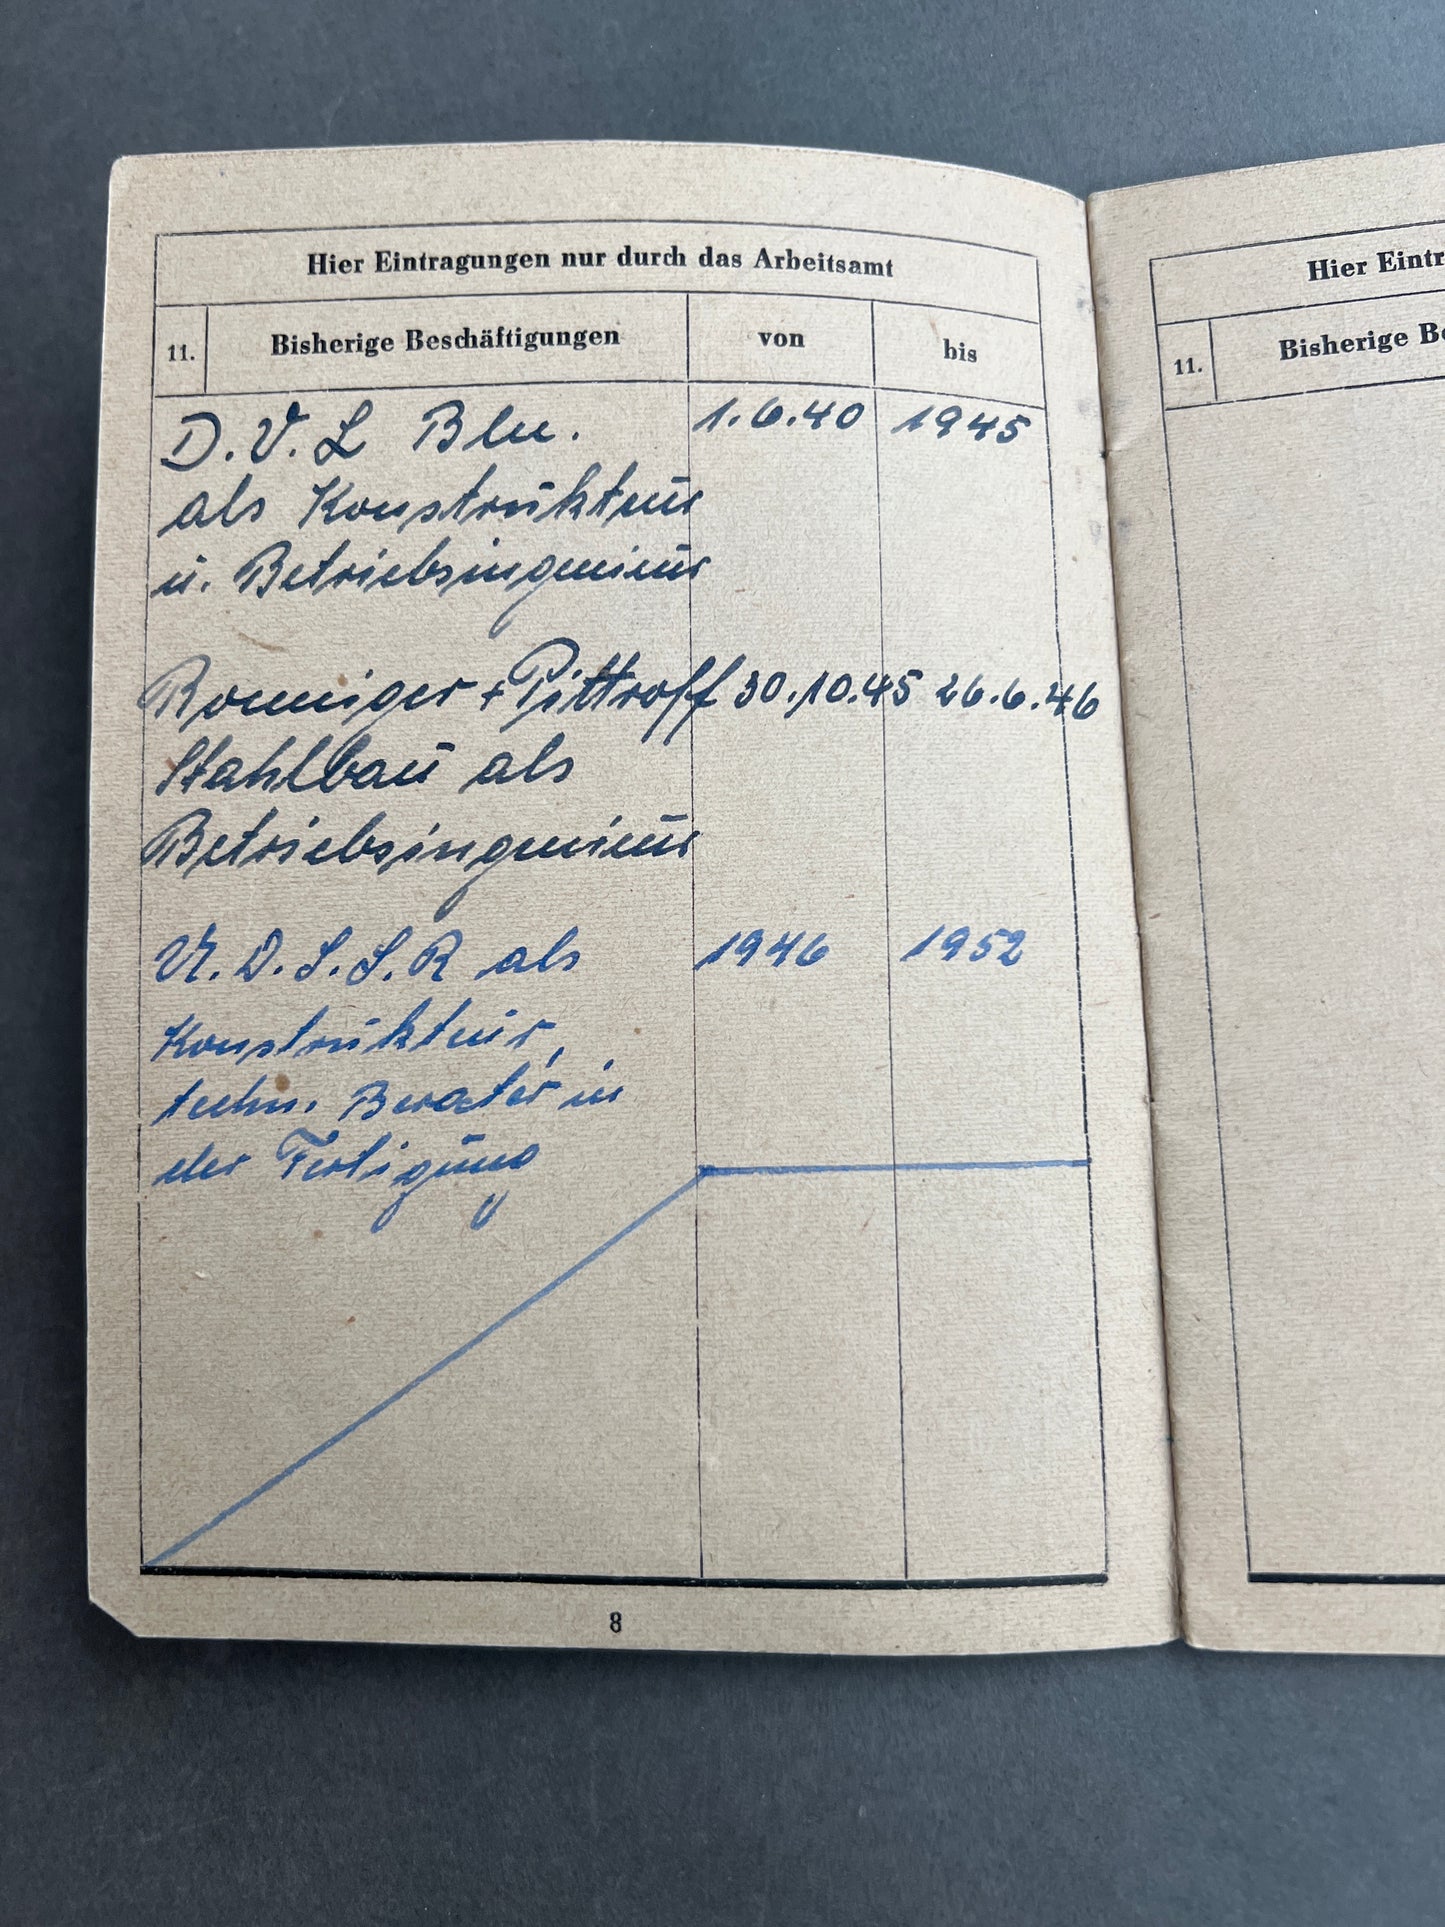 Hier Eintragungen nur durch das Arbeitsamt
11. Bisherige Beschäftigungen von bis
D.V.L Bln. 1.6.40 1945
als Konstrukteur
u. Betriebsingenieur
+ Pittroff 30.10.45 26.6.46
Stahlbau als
Betriebsingenieur
U.d.S.S.R als 1946 1952
Konstrukteur,
techn. Berater in
der Fertigung
8
Hier Eintr
11. Bisherige Be